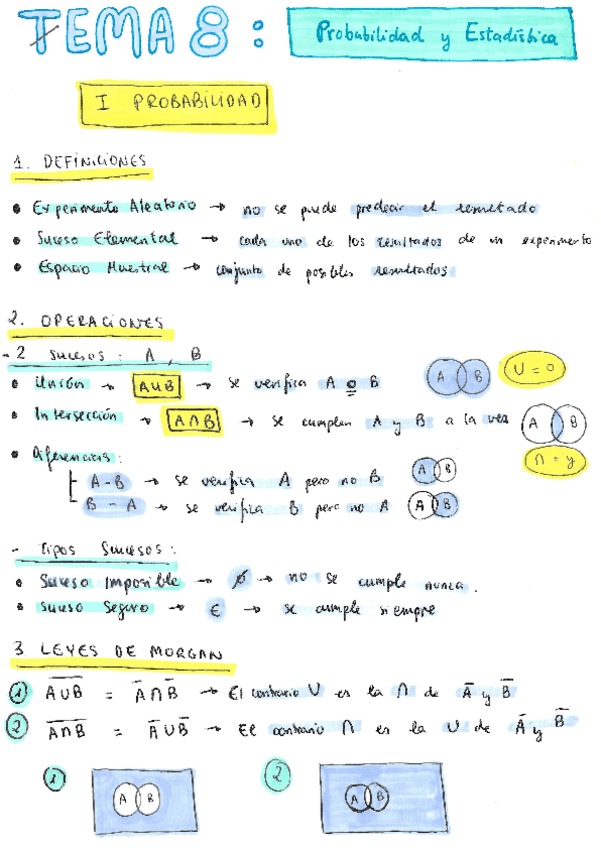 TEMA 8 : Probabilidad y Estadística
I PROBABILIDAD
1. DEFINICIONES
• Experimento Aleatorio → no se puede predecir el resultado
• Suceso Elemental → cada uno de los resultados de un experimento
• Espacio Muestral → conjunto de posibles resultados
2. OPERACIONES
- 2 sucesos : A , B
• Unión → A∪B → se verifica A o B A B U = o
• Intersección → A∩B → se cumplen A y B a la vez A B
• Diferencias : ∩ = y
A - B → se verifica A pero no B A B
B - A → se verifica B pero no A A B
- Tipos Sucesos :
• Suceso Imposible → ∅ → no se cumple nunca.
• Suceso Seguro → E → se cumple siempre
3 LEYES DE MORGAN
1 A̅U̅B̅ = A̅ ∩ B̅ → El contrario U es la ∩ de A̅ y B̅
2 A̅∩̅B̅ = A̅ U B̅ → El contrario ∩ es la U de A̅ y B̅
1 A B 2 A B